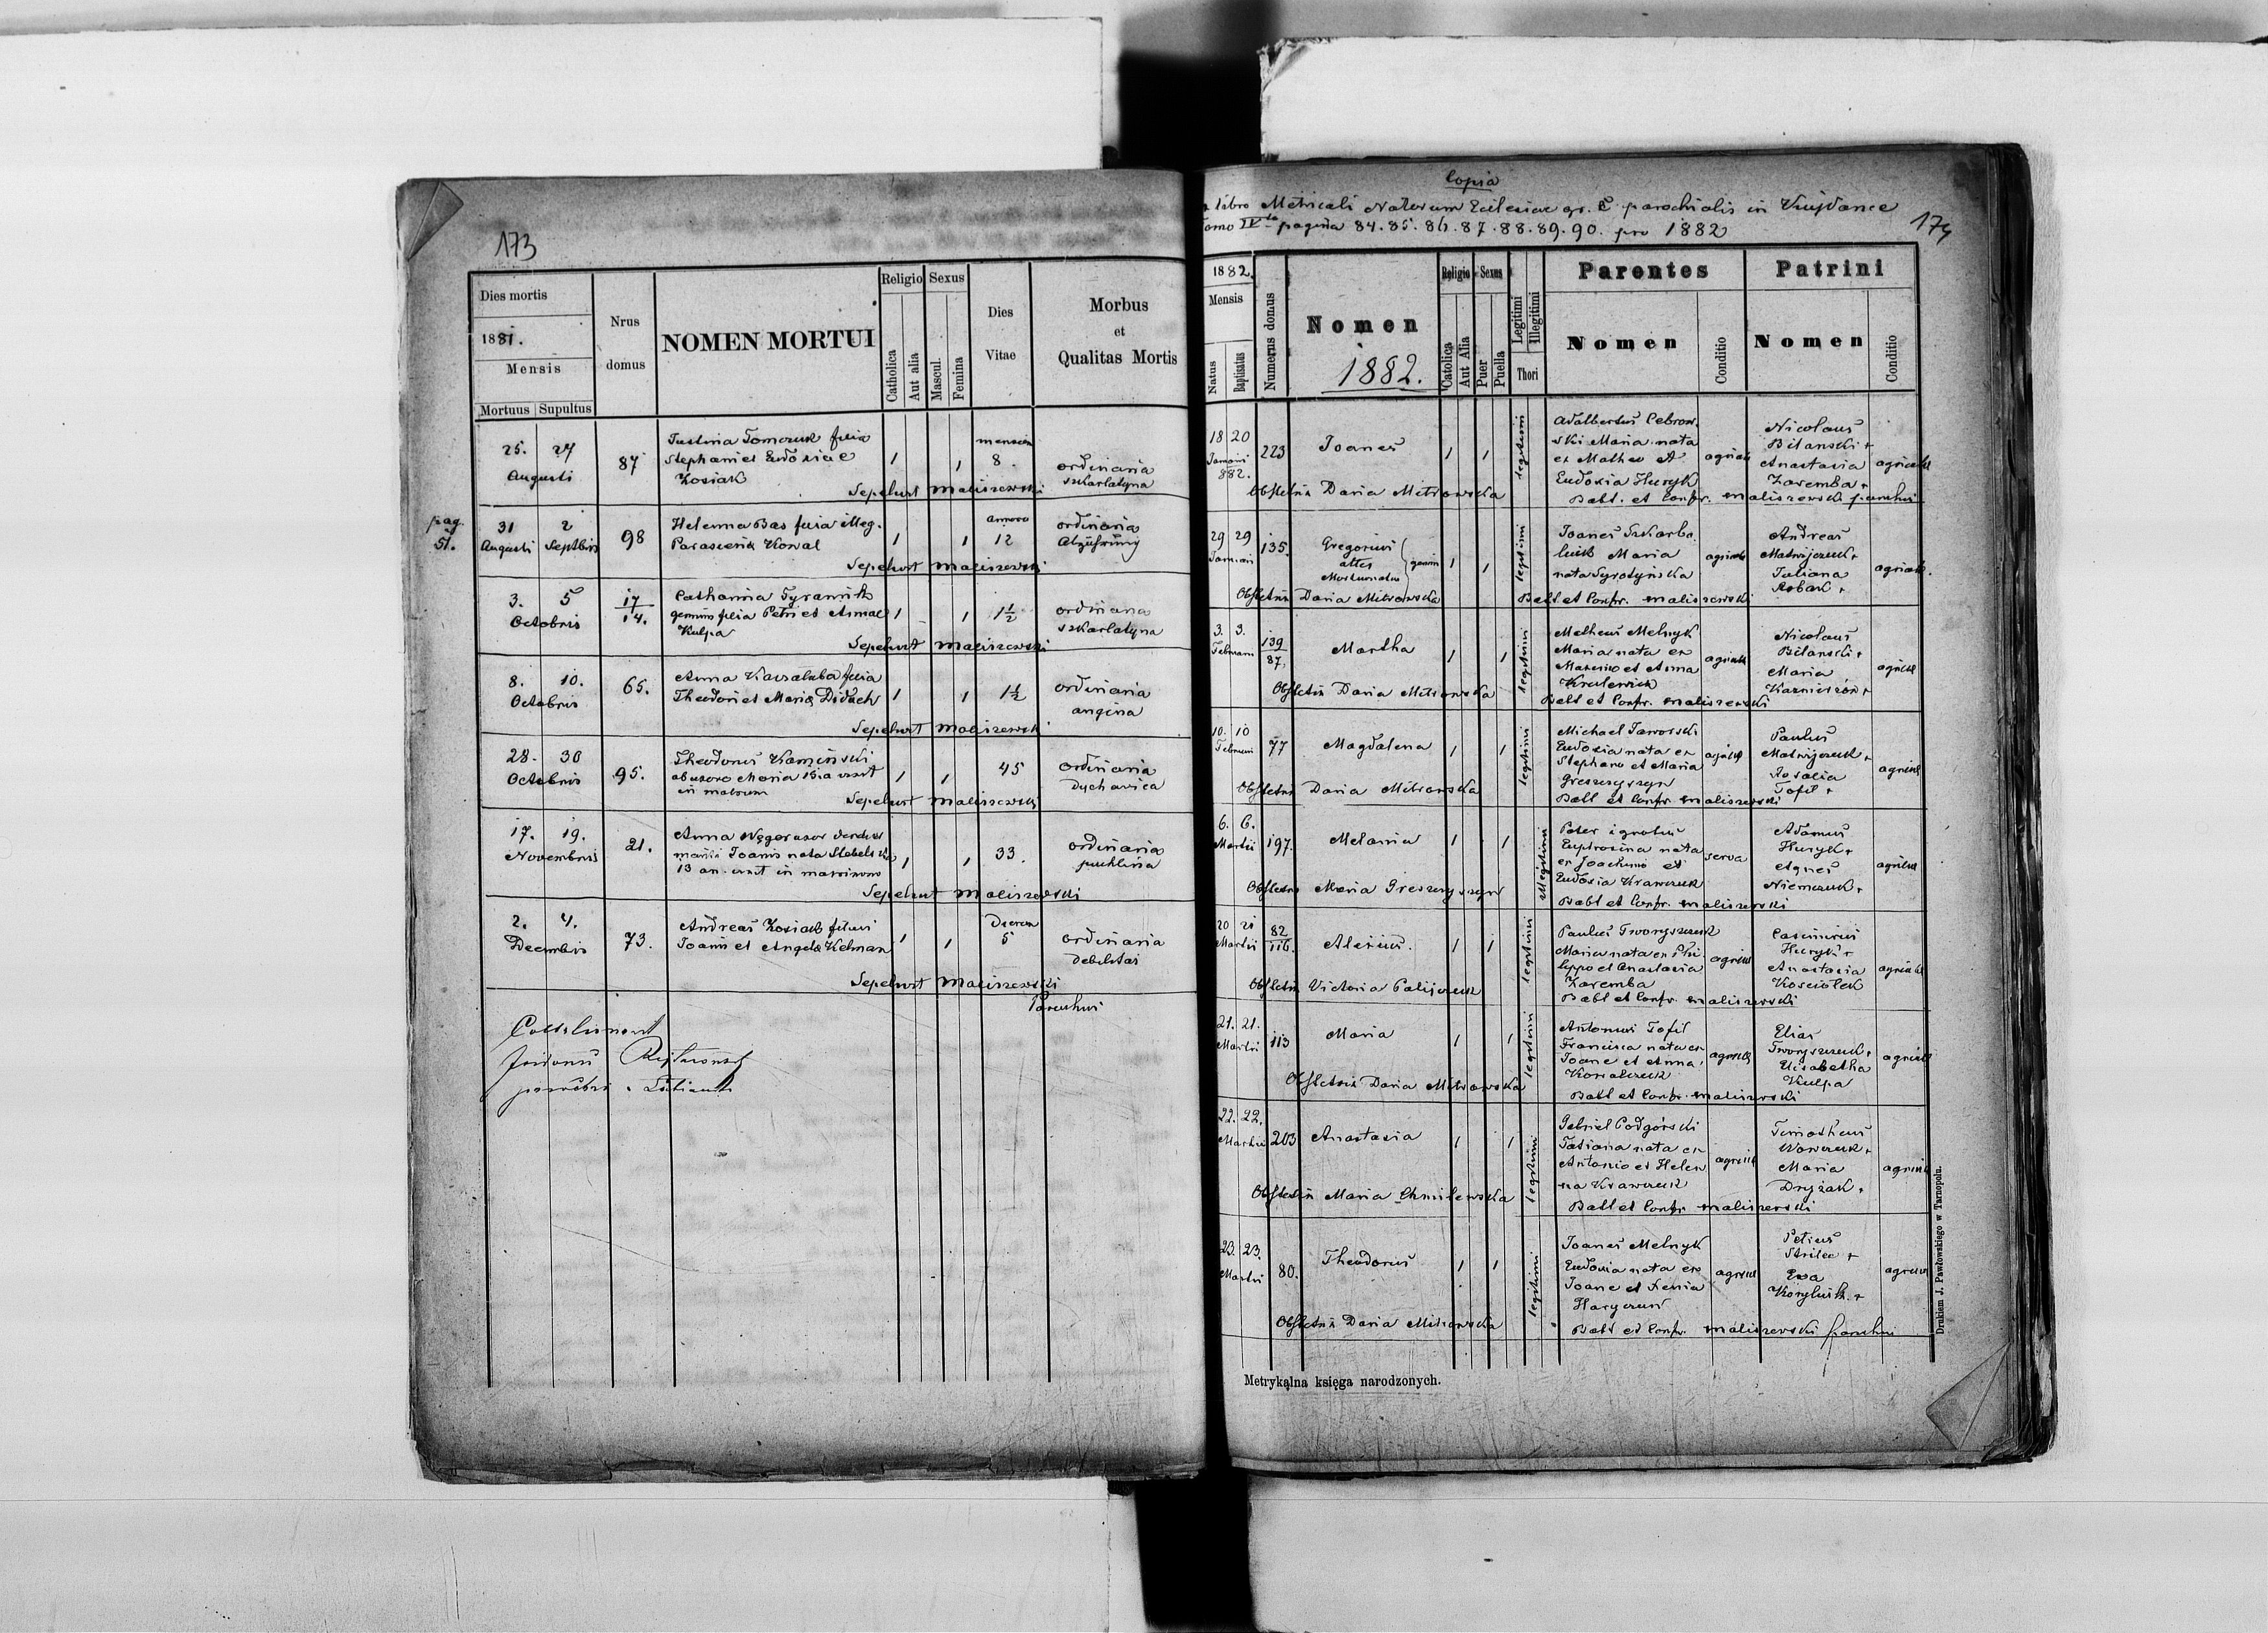 173
Dies mortis
1881.
Mensis
Mortuus Supultus
Nrus
domus
NOMEN MORTUI
Religio
Catholica
Aut alia
Sexus
Mascul.
Femina
Dies
Vitae
Morbus
et
Qualitas Mortis
25. 27
Augusti
87
Justina Tomczuk filia
Stephani et Eudoxiae
Kosiak
1 1
mensium
8.
ordinaria
szkarlatyna
Sepelivit Maliszewski
pag.
51.
31 2
Augusti Septbris
98
Helena Bas filia illeg.
Parascevia Kowal
1 1
annorum
12
ordinaria
Abzehrung
Sepelivit Maliszewski
3. 5
Octobris
17
14.
Catharina
gemin filia Petri et Annae
Kulpa
1 1
1 1/2
ordinaria
szkarlatyna
Sepelivit Maliszewski
8. 10.
Octobris
65.
Anna filia
Theodori et Maria Didach
1 1
1 1/2
ordinaria
angina
Sepelivit Maliszewski
28. 30
Octobris
95.
Theodorus Kamiński
ab uxore Maria 15 a vixit
in matrim
1 1
45
ordinaria
dychawica
Sepelivit Maliszewski
17. 19.
Novembris
21.
Anna
Joannis nata Stebelska
13 an. vixit in matrimonio
1 1
33.
ordinaria
puchlina
Sepelivit Maliszewski
2. 4.
Decembris
73.
Andreas Kosiak filius
Joannis et Angela Kelman
1 1
Dierum
5
ordinaria
debilitas
Sepelivit Maliszewski
Parochus
Copia
ex libro Metricali Natorum Ecclesiae gr. c. parochialis in Kujdance
Tomo IV-to pagina 84. 85. 86. 87. 88. 89. 90. pro 1882
174
1882.
Mensis
Natus
Baptisatus
Numerus domus
Nomen
1882.
Religio
Catolica
Aut Alia
Sexus
Puer
Puella
Legitimi
Illegitimi
Thori
Parentes
Nomen
Conditio
Patrini
Nomen
Conditio
18 20
Januari
882.
223
Joanes
1 1
legitimi
Adalbertus Cebrow
ski Maria nata
ex Matheo et
Eudoxia Huryk
agricola
Nicolaus
Bilanski +
Anastasia
Zaremba +
agricola
Obstetrix Daria Mitrowska
Babt. et Confr. Maliszewski parochus
29 29
Januari
135.
Gregorius
alter
Mortuus natus
gemin
1 1
legitimi
Joanes Szkarba
luk Maria
nata Syrotyńska
agricola
Andreas
Matwijczuk +
Tatiana
Robak +
agricola
Obstetrix Daria Mitrowska
Babt et Confr. Maliszewski
3. 3.
Februari
139
87.
Martha
1 1
legitimi
Matheus Melnyk
Maria nata ex
Maximo et Anna
Krulewicz
agricola
Nicolaus
Bilanski +
Maria
Kazmirzów +
agricol
Obstetrix Daria Mitrowska
Babt et Confr. Maliszewski
10. 10
Februari
77
Magdalena
1 1
legitimi
Michael Jaworski
Eudoxia nata ex
Stephano et Maria
Greszczyszyn
agricol
Paulus
Matwijczuk +
Rosalia
Tofil +
agricol
Obstetrix Daria Mitrowska
Babt et Confr Maliszewski
6. 6.
Martii
197.
Melania
1 1
illegitimi
Pater ignotus
Euphrosina nata
ex Joachimo et
Eudoxia Krawczuk
serva
Adamus
Huryk +
Agnes
Niemczuk +
agricol
Obstetrix Maria Greszczyszyn
Babt et Confr. Maliszewski
20 21
Martii
82
116.
Alexius.
1 1
legitimi
Paulus Tworyszczuk
Maria nata ex Phi
lippo et Anastasia
Zaremba
agricol
Casimirus
Huryk +
Anastasia
Kosciolek
agricol
Obstetrix Victoria Palijczuk
Babt et Confr Maliszewski
21. 21.
Martii
113
Maria
1 1
legitimi
Antonius Tofil
Francisca nata ex
Joane et Anna
Kowalczuk
agricol
Elias
Tworyszczuk +
Elisabetha
Kulpa
agricol
Obstetrix Daria Mitrowska
Babt et Confr. Maliszewski
22. 22.
Martii
203
Anastasia
1 1
legitimi
Gabriel Podgórski
Tatiana nata ex
Antonio et Hele
na Krawczuk
agricol
Timotheus
Wowczuk +
Maria
Dryżak +
agricol
Obstetrix Maria Chmilewska
Babt et Confr Maliszewski
23. 23.
Martii
80.
Theodorus
1 1
legitimi
Joanes Melnyk
Eudoxia nata ex
Joane et Xenia
agricol
Petrus
Strilec +
Eva
agricol
Obstetrix Daria Mitrowska
Babt et Confr. Maliszewski parochus
Metrykalna księga narodzonych.
Drukiem J. Pawłowskiego w Tarnopolu.